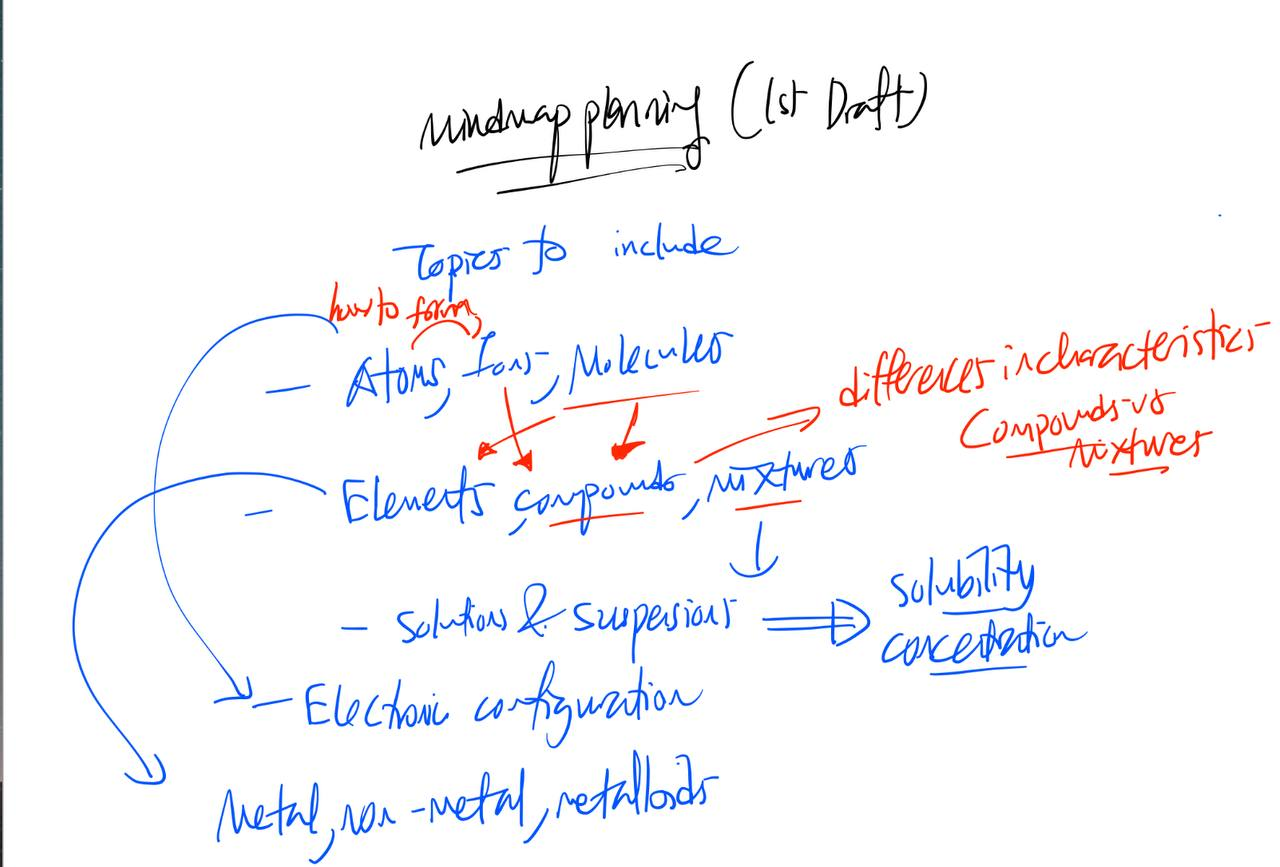 Mindmap planning (1st Draft)
Topics to include
how to form
- Atoms, Ions, Molecules
differences in characteristics
Compounds vs
Mixtures
- Elements, compounds, mixtures
- Solutions & suspensions
solubility
concentration
- Electronic configuration
Metal, non-metal, metalloids